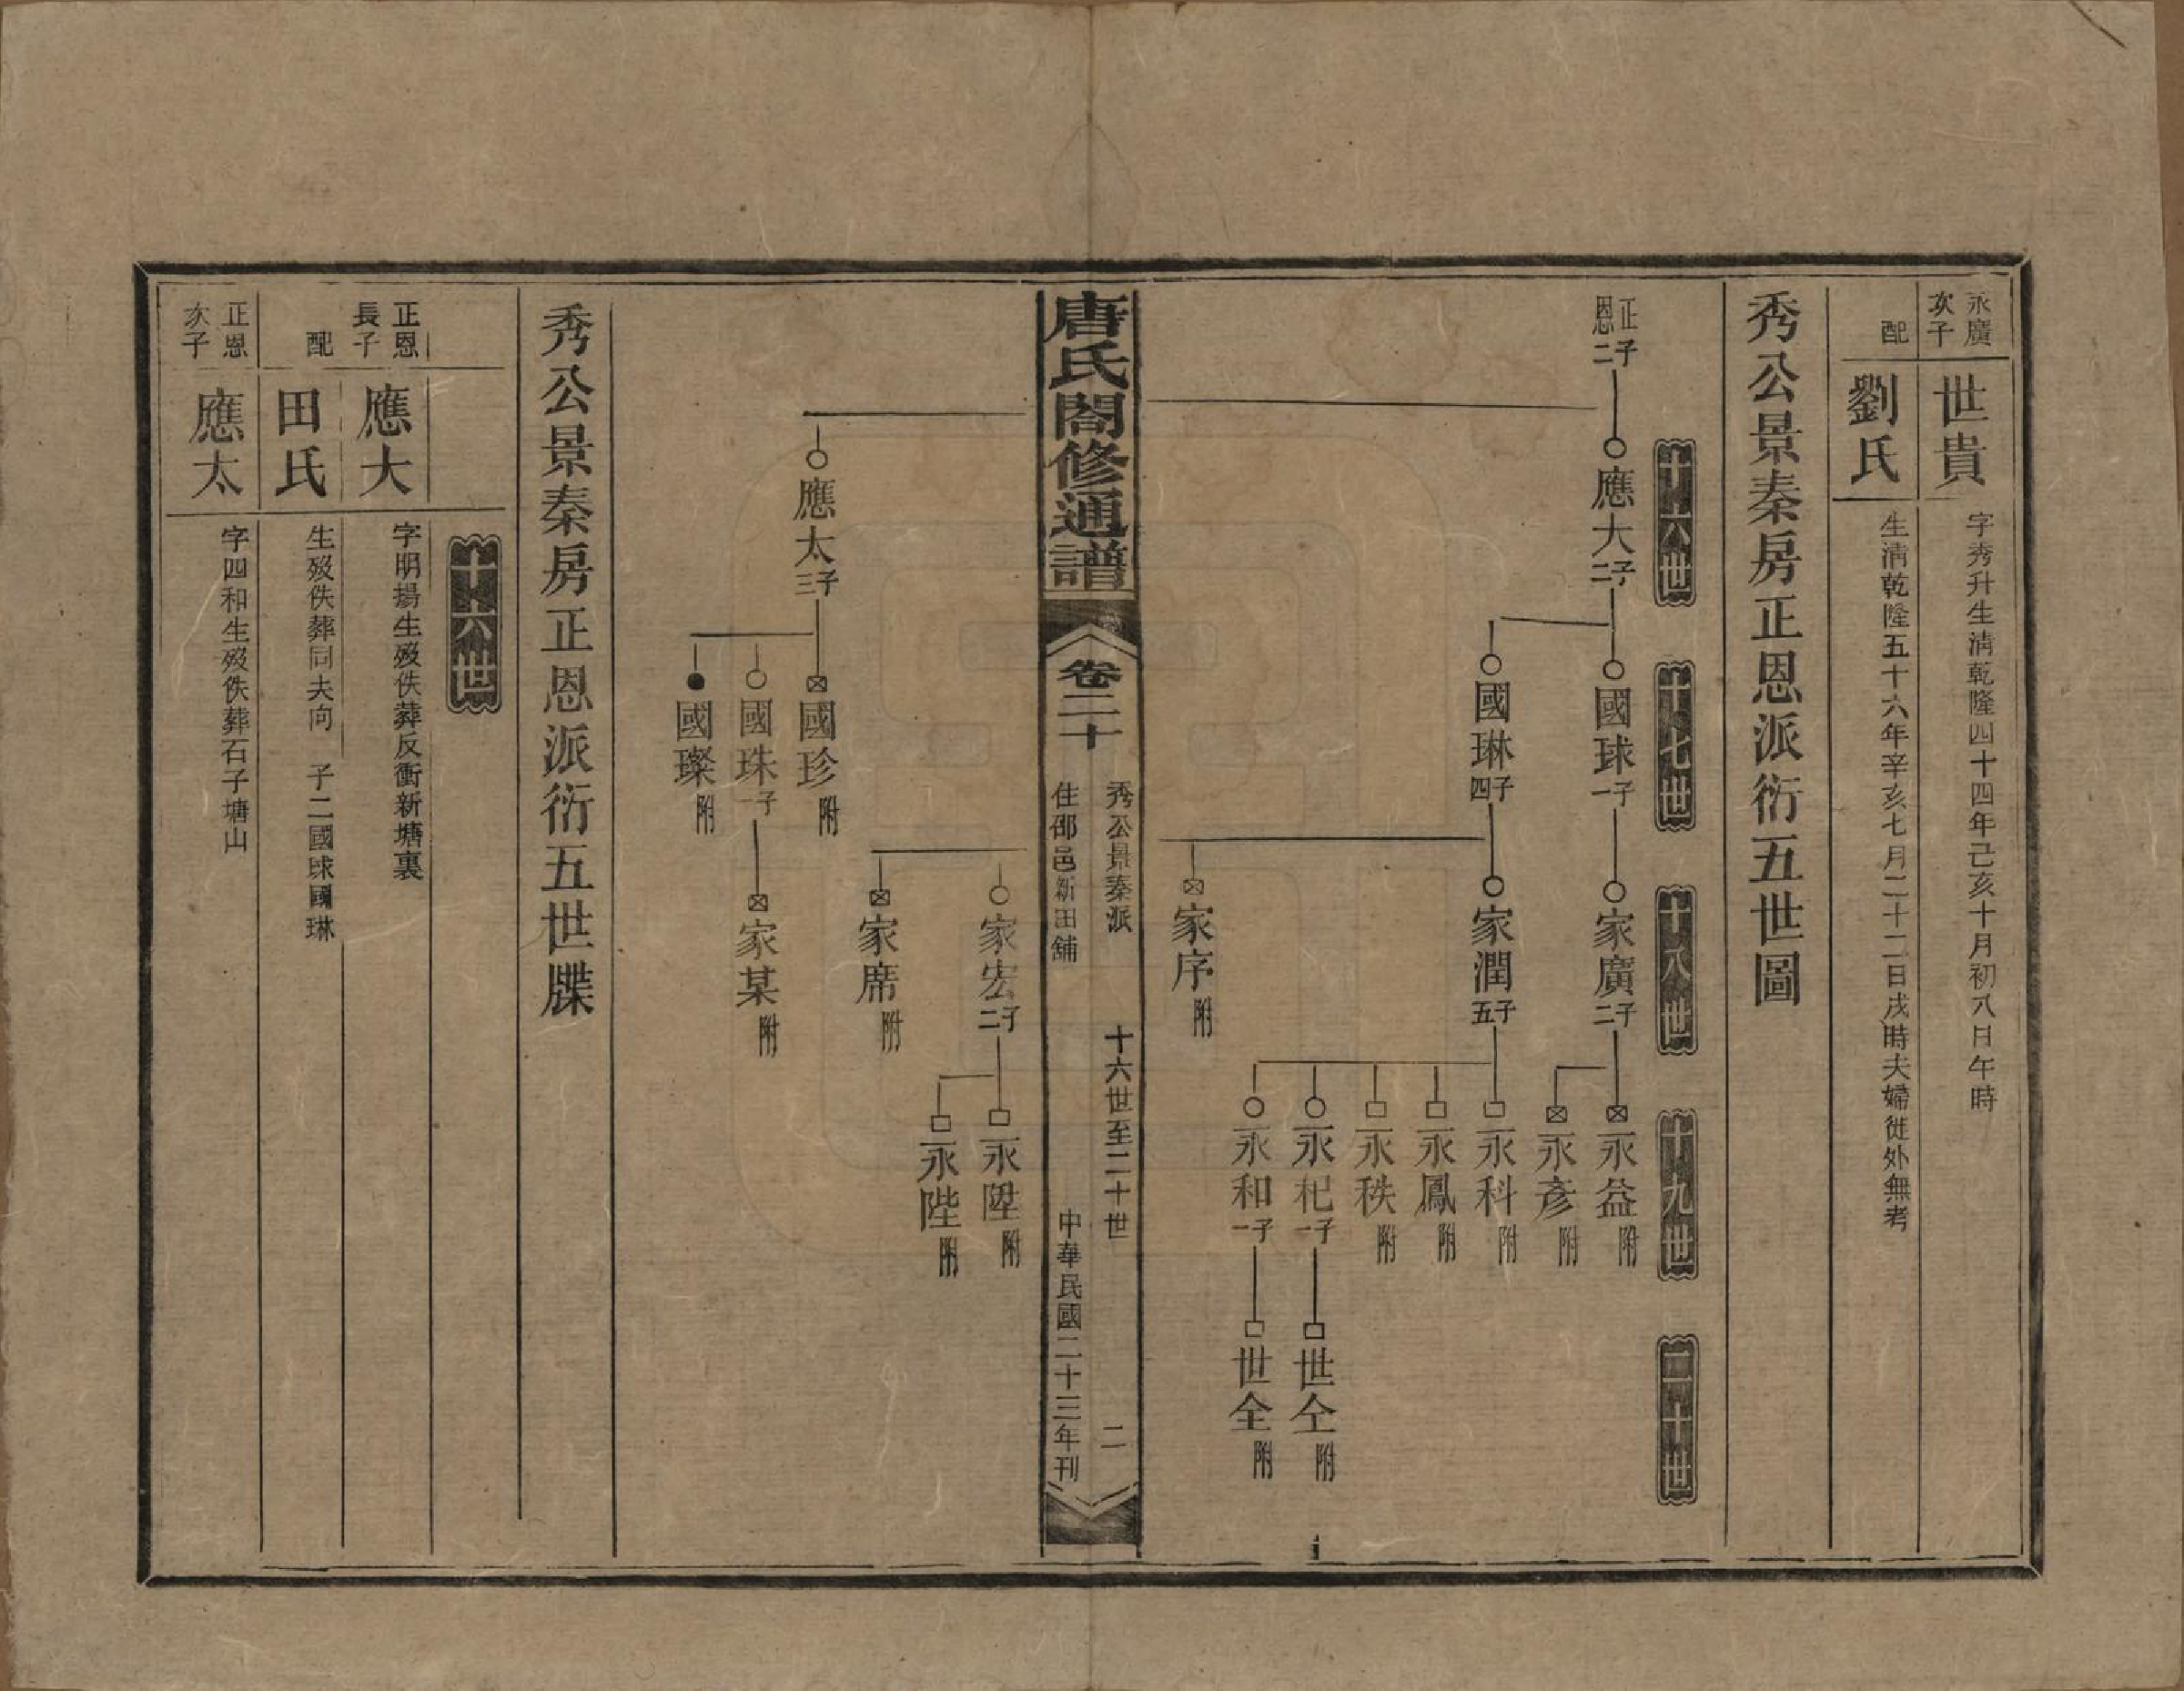 永廣次子
世貴
字秀升生清乾隆四十四年己亥十月初八日午時
配
劉氏
生清乾隆五十六年辛亥七月二十二日戌時夫婦徙外無考
秀公景秦房正恩派衍五世圖
十六世
十七世
十八世
十九世
二十世
正恩二子
應大二子
國球一子
家廣二子
永益附
永彥附
國琳四子
家潤五子
永科附
永鳳附
永秩附
永杞一子
世仝附
永和一子
世全附
家序附
唐氏閤修通譜
卷二十
秀公景秦派
住邵邑新田舖
十六世至二十世
二
中華民國二十三年刊
家宏二子
永陞附
永陛附
家席附
應太三子
國珍附
國珠一子
家某附
國璨附
秀公景秦房正恩派衍五世牒
十六世
正恩長子
應大
字明揚生歿佚葬反衝新塘裏
配
田氏
生歿佚葬同夫向 子二國球國琳
正恩次子
應太
字四和生歿佚葬石子塘山